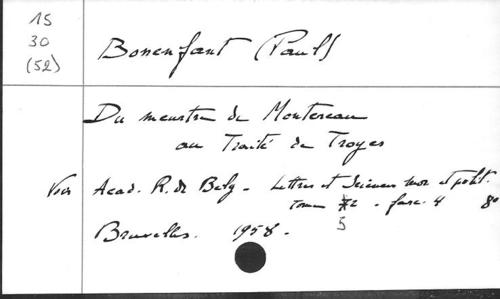 15
30
(52)
Bonenfant (Paul)
Du meurtre de Montereau
au Traité de Troyes
Voir Acad. R. de Belg. - Lettres et Sciences mor. et polit.
Tome 52 - fasc. 4 8°
Bruxelles. 1958.